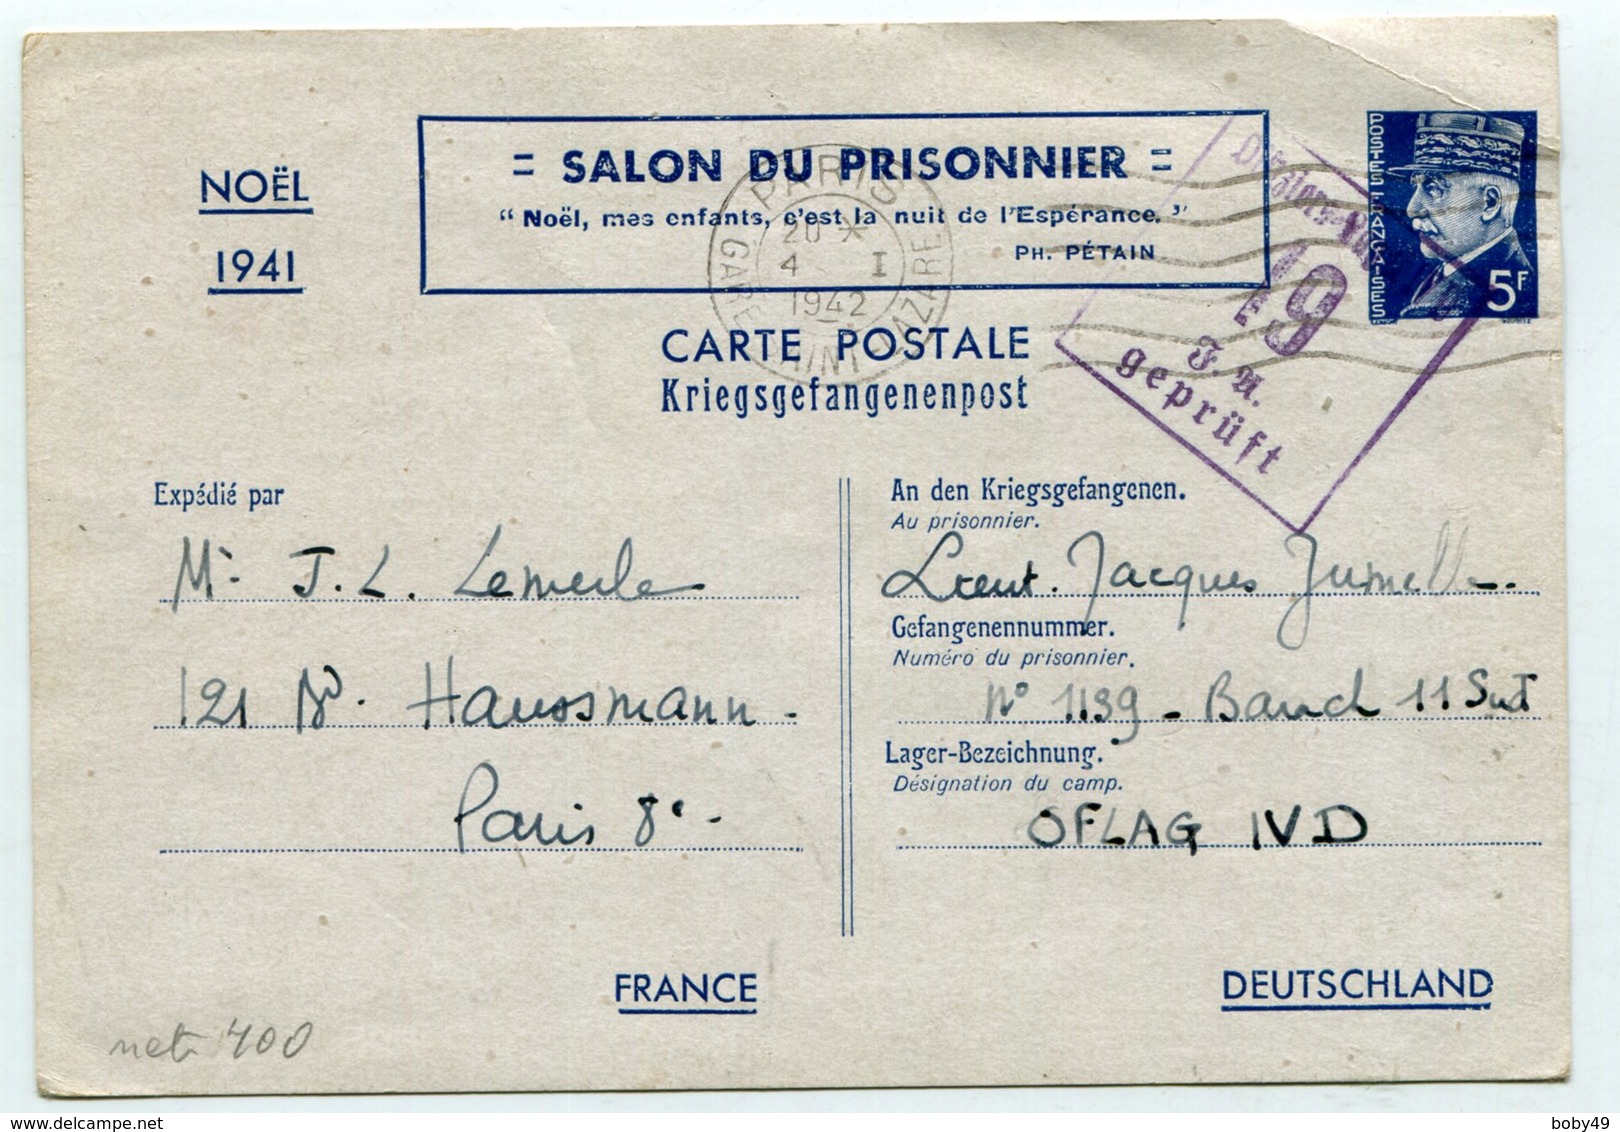 NOËL
1941
= SALON DU PRISONNIER =
“ Noël, mes enfants, c'est la nuit de l'Espérance. ”
PH. PÉTAIN
POSTES FRANÇAISES
5F
PARIS
GARE SAINT-LAZARE
20 *
4 I
1942
19
F.A.
geprüft
CARTE POSTALE
Kriegsgefangenenpost
Expédié par
Mr J. L. Lemerle
121 Bd. Haussmann -
Paris 8e -
An den Kriegsgefangenen.
Au prisonnier.
Lieut. Jacques Jumelle.
Gefangenennummer.
Numéro du prisonnier.
N° 1139 - Barack 11 Sud
Lager-Bezeichnung.
Désignation du camp.
OFLAG IV D
FRANCE
DEUTSCHLAND
net 400
delcampe.net
boby49